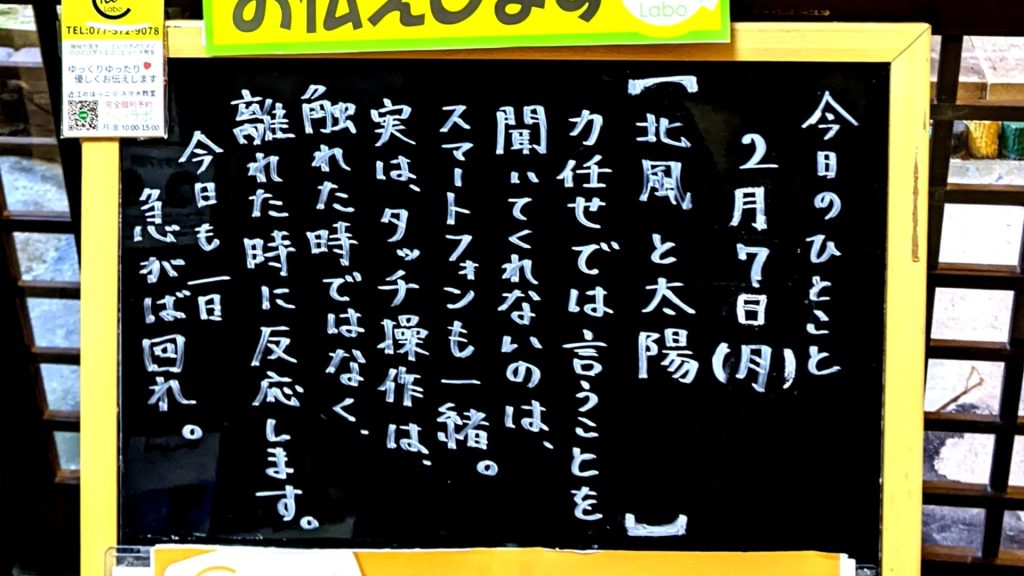 お伝えします
Labo
Labo
TEL:077-572-9078
ゆっくりゆったり
優しくお伝えします
近江のほっこりスマホ教室
完全個別予約
月-金 10:00-15:00
今日のひとこと
2月7日(月)
【北風と太陽】
力任せでは言うことを
聞いてくれないのは、
スマートフォンも一緒。
実は、タッチ操作は、
触れた時ではなく、
離れた時に反応します。
今日も一日
急がば回れ。